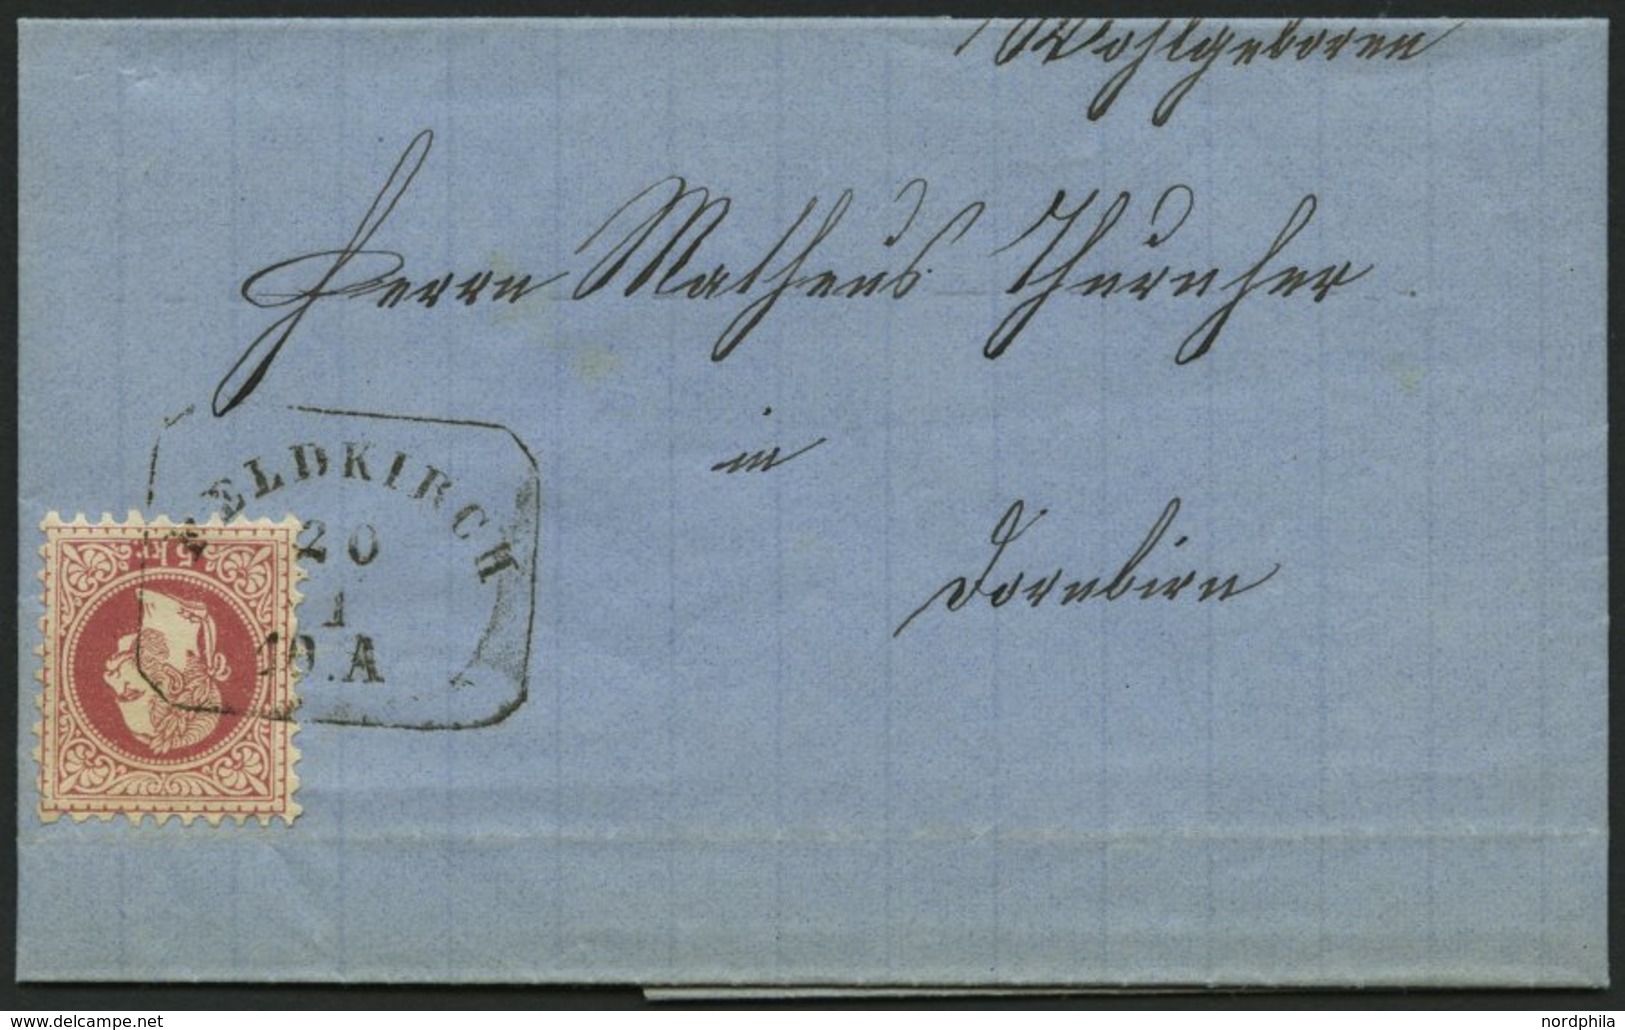 Wohlgeboren
Herrn Matheus Thurnher
in
Dornbirn
FELDKIRCH
20
1
10.A
5 kr
delcampe.net
nordphila